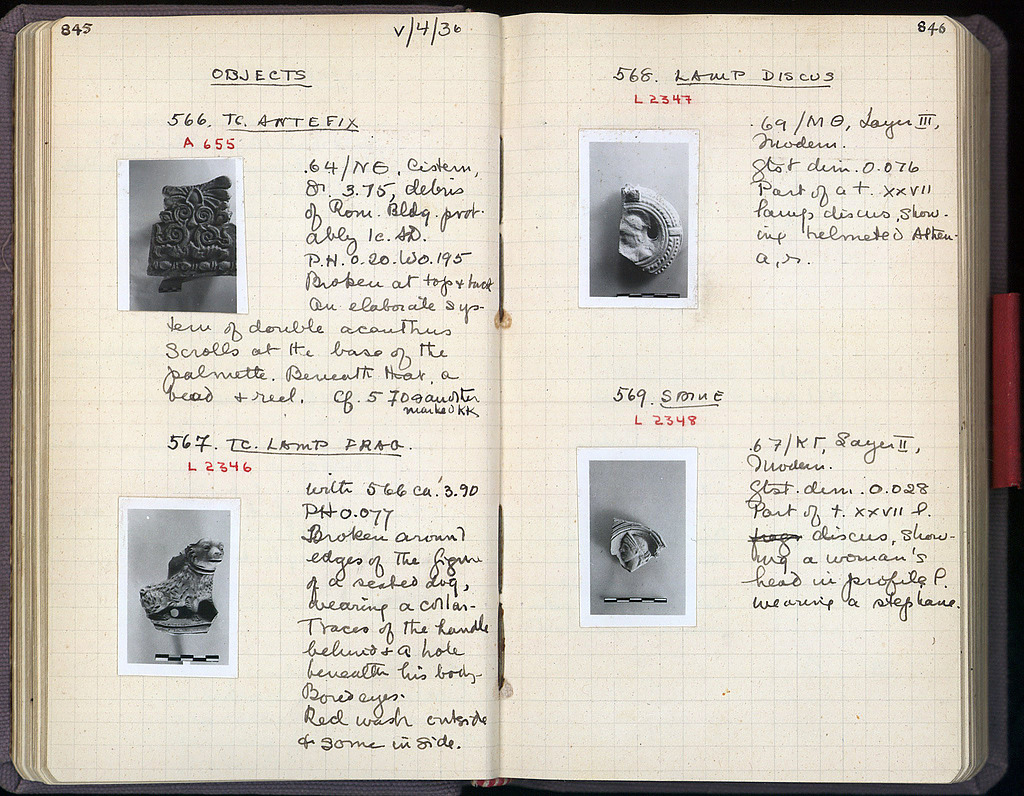 845
V/4/36
OBJECTS
566. TC. ANTEFIX
A 655
.64/ΝΘ, Cistern,
3.75, debris
of Rom. Bldg. prob-
ably 1c. AD.
P.H. 0.20. W0.195
Broken at top & back
An elaborate sys-
tem of double acanthus
scrolls at the base of the
palmette. Beneath that, a
bead & reel. Cf. 570 & another
marked KK
567. TC. LAMP FRAG.
L 2346
With 566 ca. 3.90
PH 0.077
Broken around
edges of the figure
of a seated dog,
wearing a collar.
Traces of the handle
behind & a hole
beneath his body.
Bored eyes.
Red wash outside
& some inside.
846
568. LAMP DISCUS
L 2347
.69/ΜΘ, Layer III,
Modern.
Gtst dim. 0.076
Part of a t. XXVII
lamp discus, show-
ing helmeted Athen-
a, r.
569. SAME
L 2348
.67/ΚΓ, Layer II,
Modern.
Gtst. dim. 0.028
Part of t. XXVII l.
frag discus, show-
ing a woman's
head in profile l.
wearing a stephane.